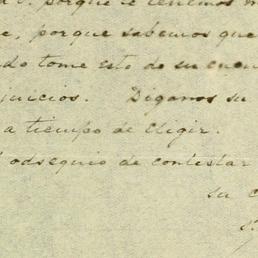 porque le tenemos
, porque sabemos que
tome esto de su cuen
juicios. Diganos su
a tiempo de elegir.
obsequio de contestar
su